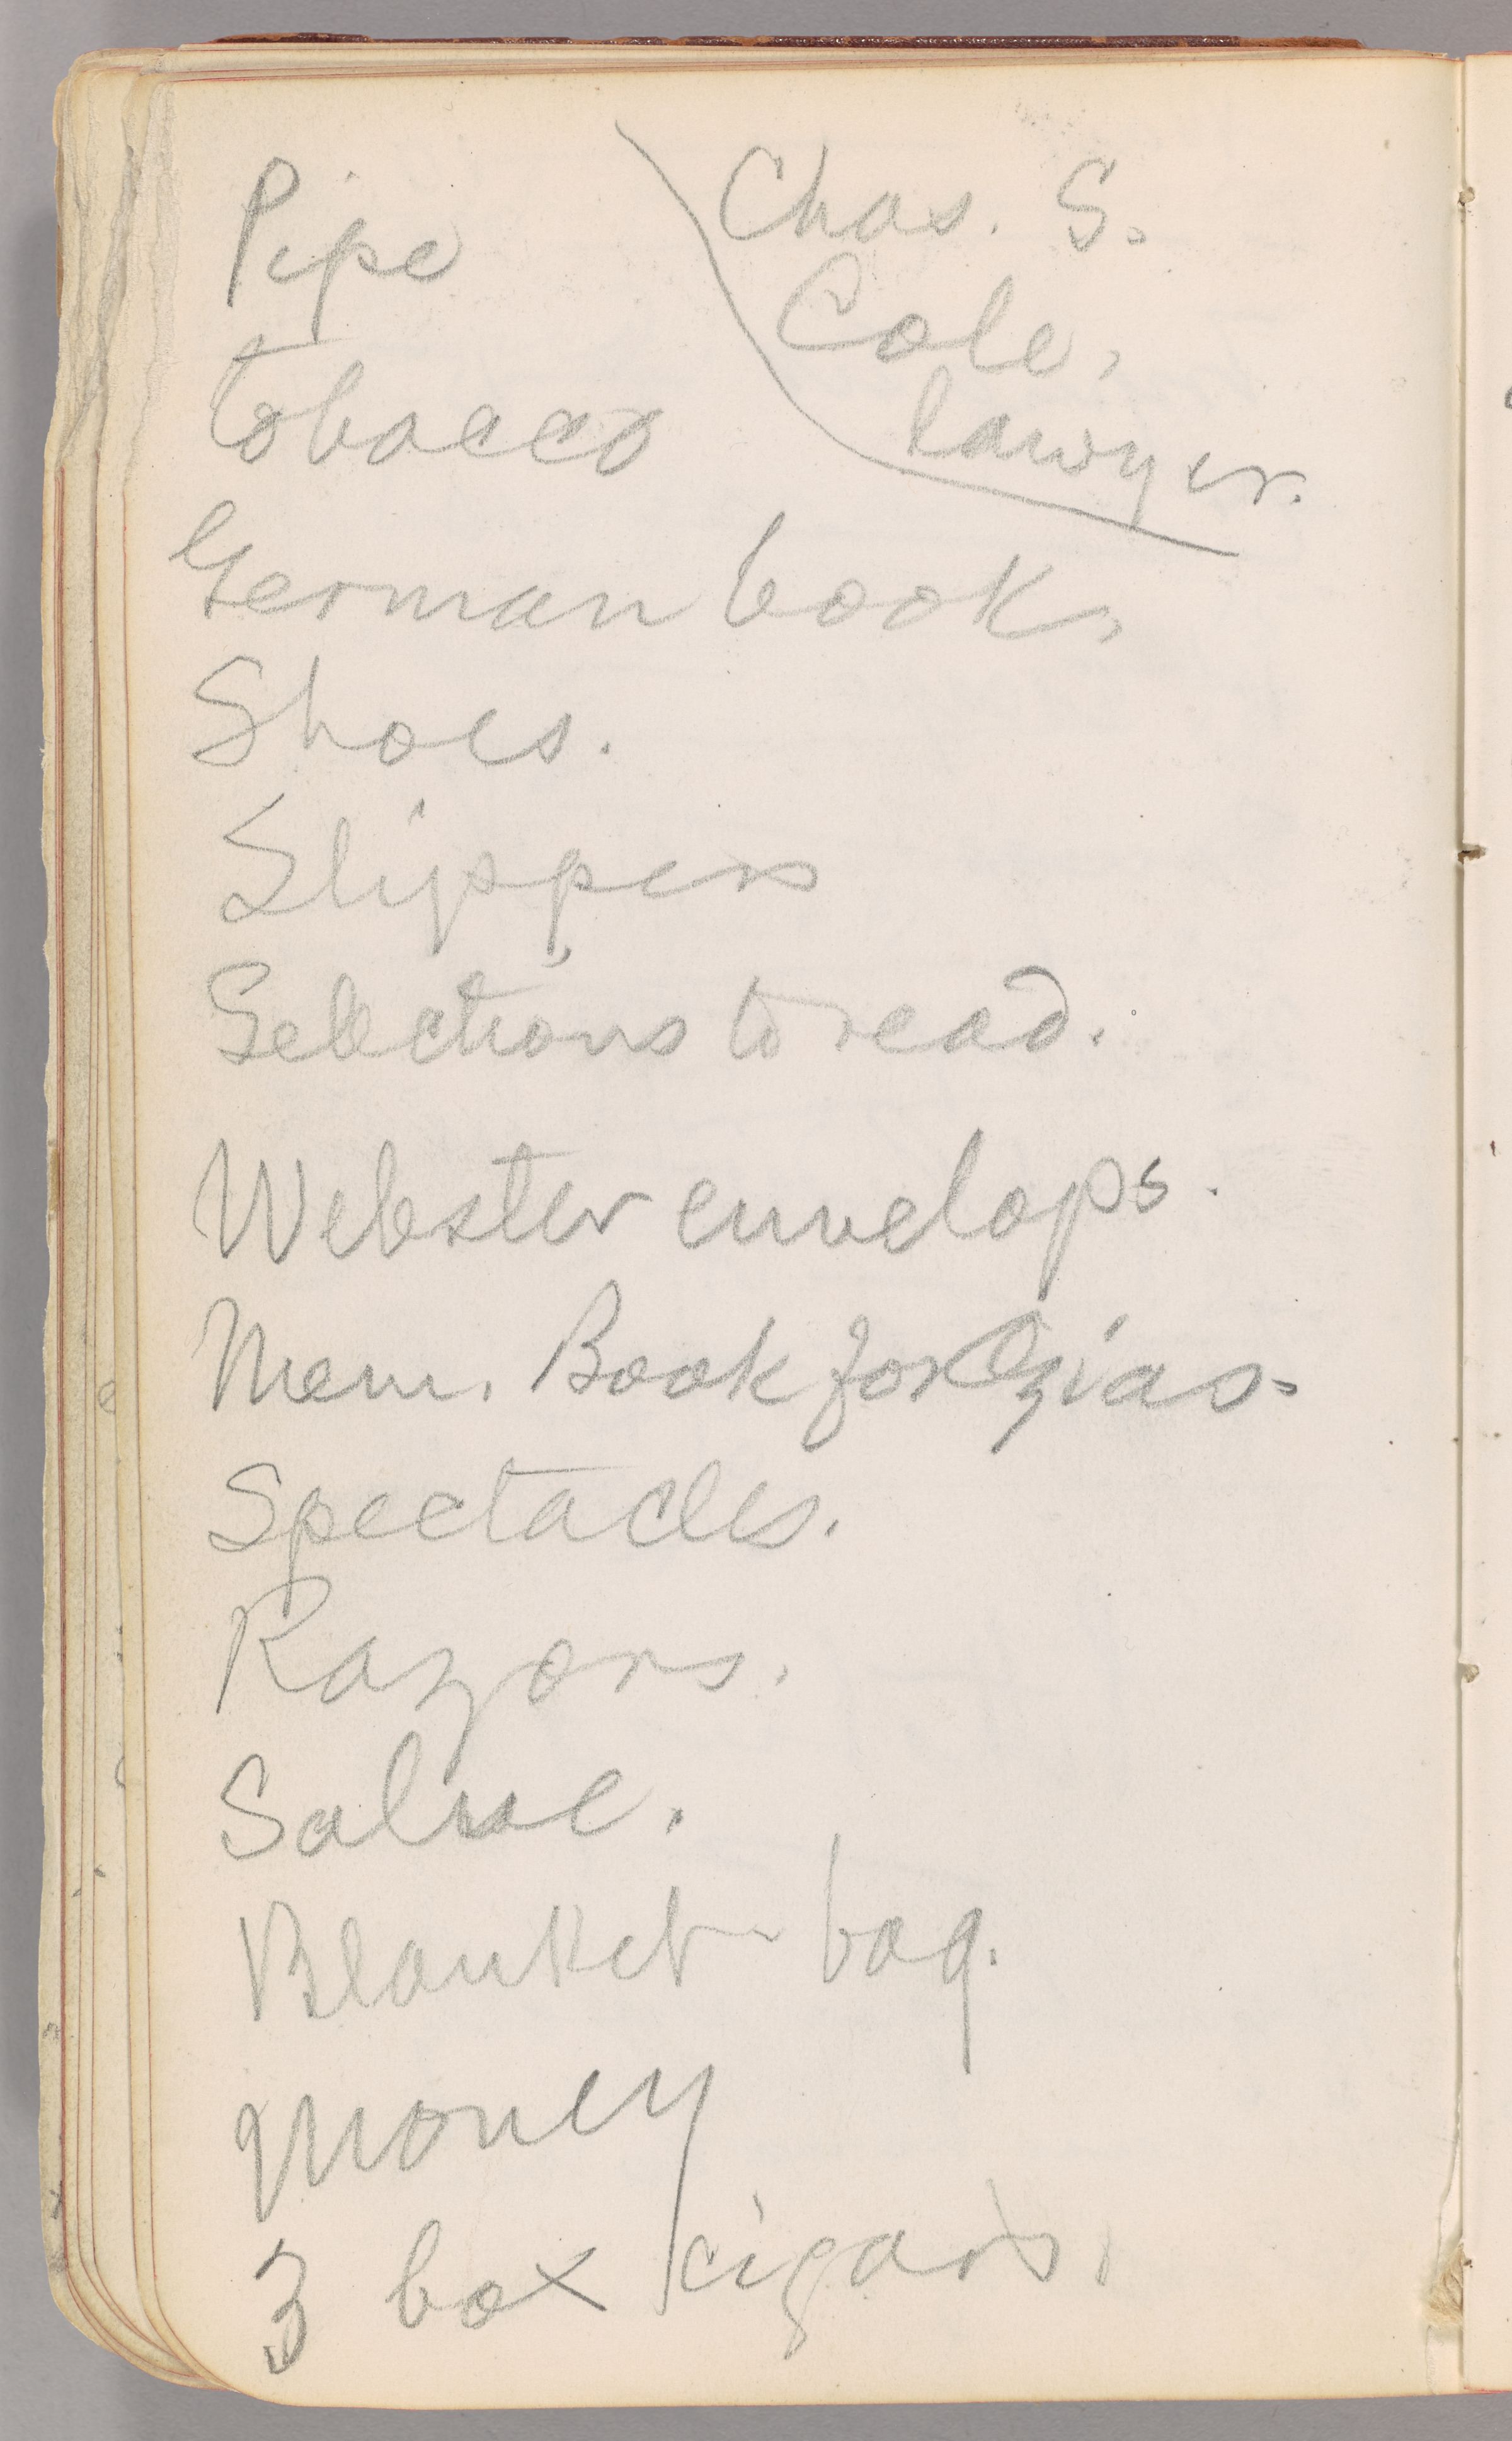 Pipe
tobacco
Chas. S.
Cole,
lawyer.
German book,
Shoes.
Slippers
Selections to read.
Webster envelops.
Mem. Book for Ozias.
Spectacles.
Razors.
Salve.
Blanket-bag.
Money
3 box cigars.